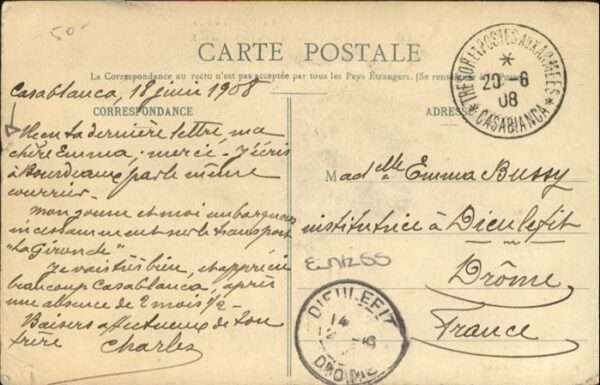 50-
CARTE POSTALE
La Correspondance au recto n'est pas acceptée par tous les Pays Étrangers. (Se renseigner
Casablanca, 18 juin 1908
CORRESPONDANCE
Reçu ta dernière lettre, ma
chère Emma; merci. J'écris
à Bourdeaux par le même
courrier.
Mon jeune et moi embarquons
incessamment sur le transport
"La Gironde"
Je vais très bien, et apprécie
beaucoup Casablanca, après
une absence de 2 mois ½
Baisers affectueux de ton
frère
Charles
ADRESSE
Mademlle Emma Bussy
institutrice à Dieulefit
Drôme
France
TRESOR ET POSTES AUX ARMEES
20-6
08
* CASABLANCA *
DIEULEFIT
14
DROME